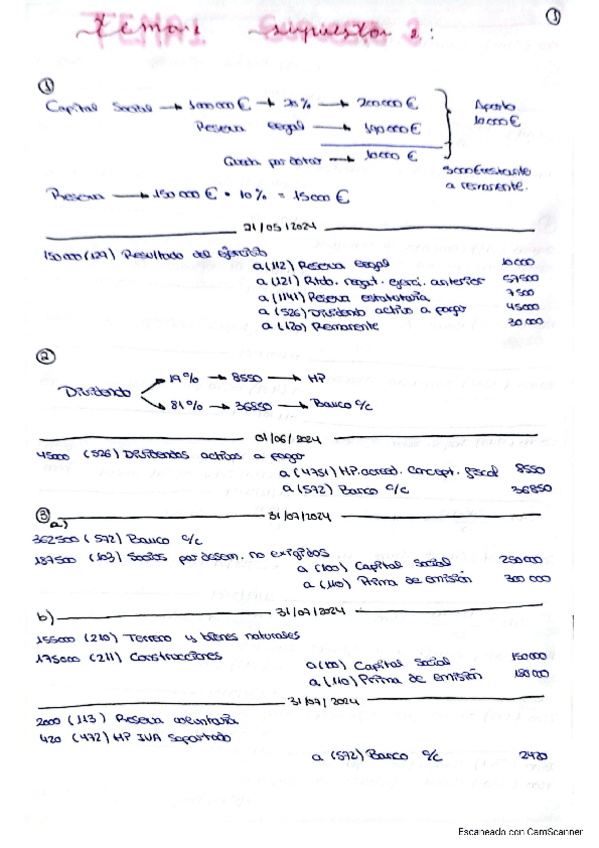 ①
TEMA 1 Supuesto 2:
①
Capital Social → 1000000 € → 20% → 200000 €
Reserva legal → 190000 €
Aporto 10000 €
Cuota por dotar → 10000 €
Reserva → 150 000 € · 10% = 15000 €
a remanente.
21/05/2024
150000 (129) Resultado del ejercicio
a (112) Reserva legal 10000
a (121) Rtdo. negat. ejerci. anterior 57500
a (1141) Reserva estatutaria 7500
a (526) Dividendo activo a pagar 45000
a (120) Remanente 30 000
②
19% → 8550 → HP
Dividendo
81% → 36850 → Banco c/c
01/06/2024
45000 (526) Dividendos activos a pagar
a (4751) HP. acreed. concept. fiscal 8550
a (572) Banco c/c 36850
③ a) 31/07/2024
362500 (572) Banco c/c
187500 (103) Socios por desem. no exigidos
a (100) Capital Social 250000
a (110) Prima de emisión 300 000
b) 31/07/2024
155000 (210) Terreno y bienes naturales
175000 (211) Construcciones
a (100) Capital Social 150000
a (110) Prima de emisión 180000
31/07/2024
2000 (113) Reserva voluntaria
420 (472) HP IVA Soportado
a (572) Banco c/c 2420
Escaneado con CamScanner